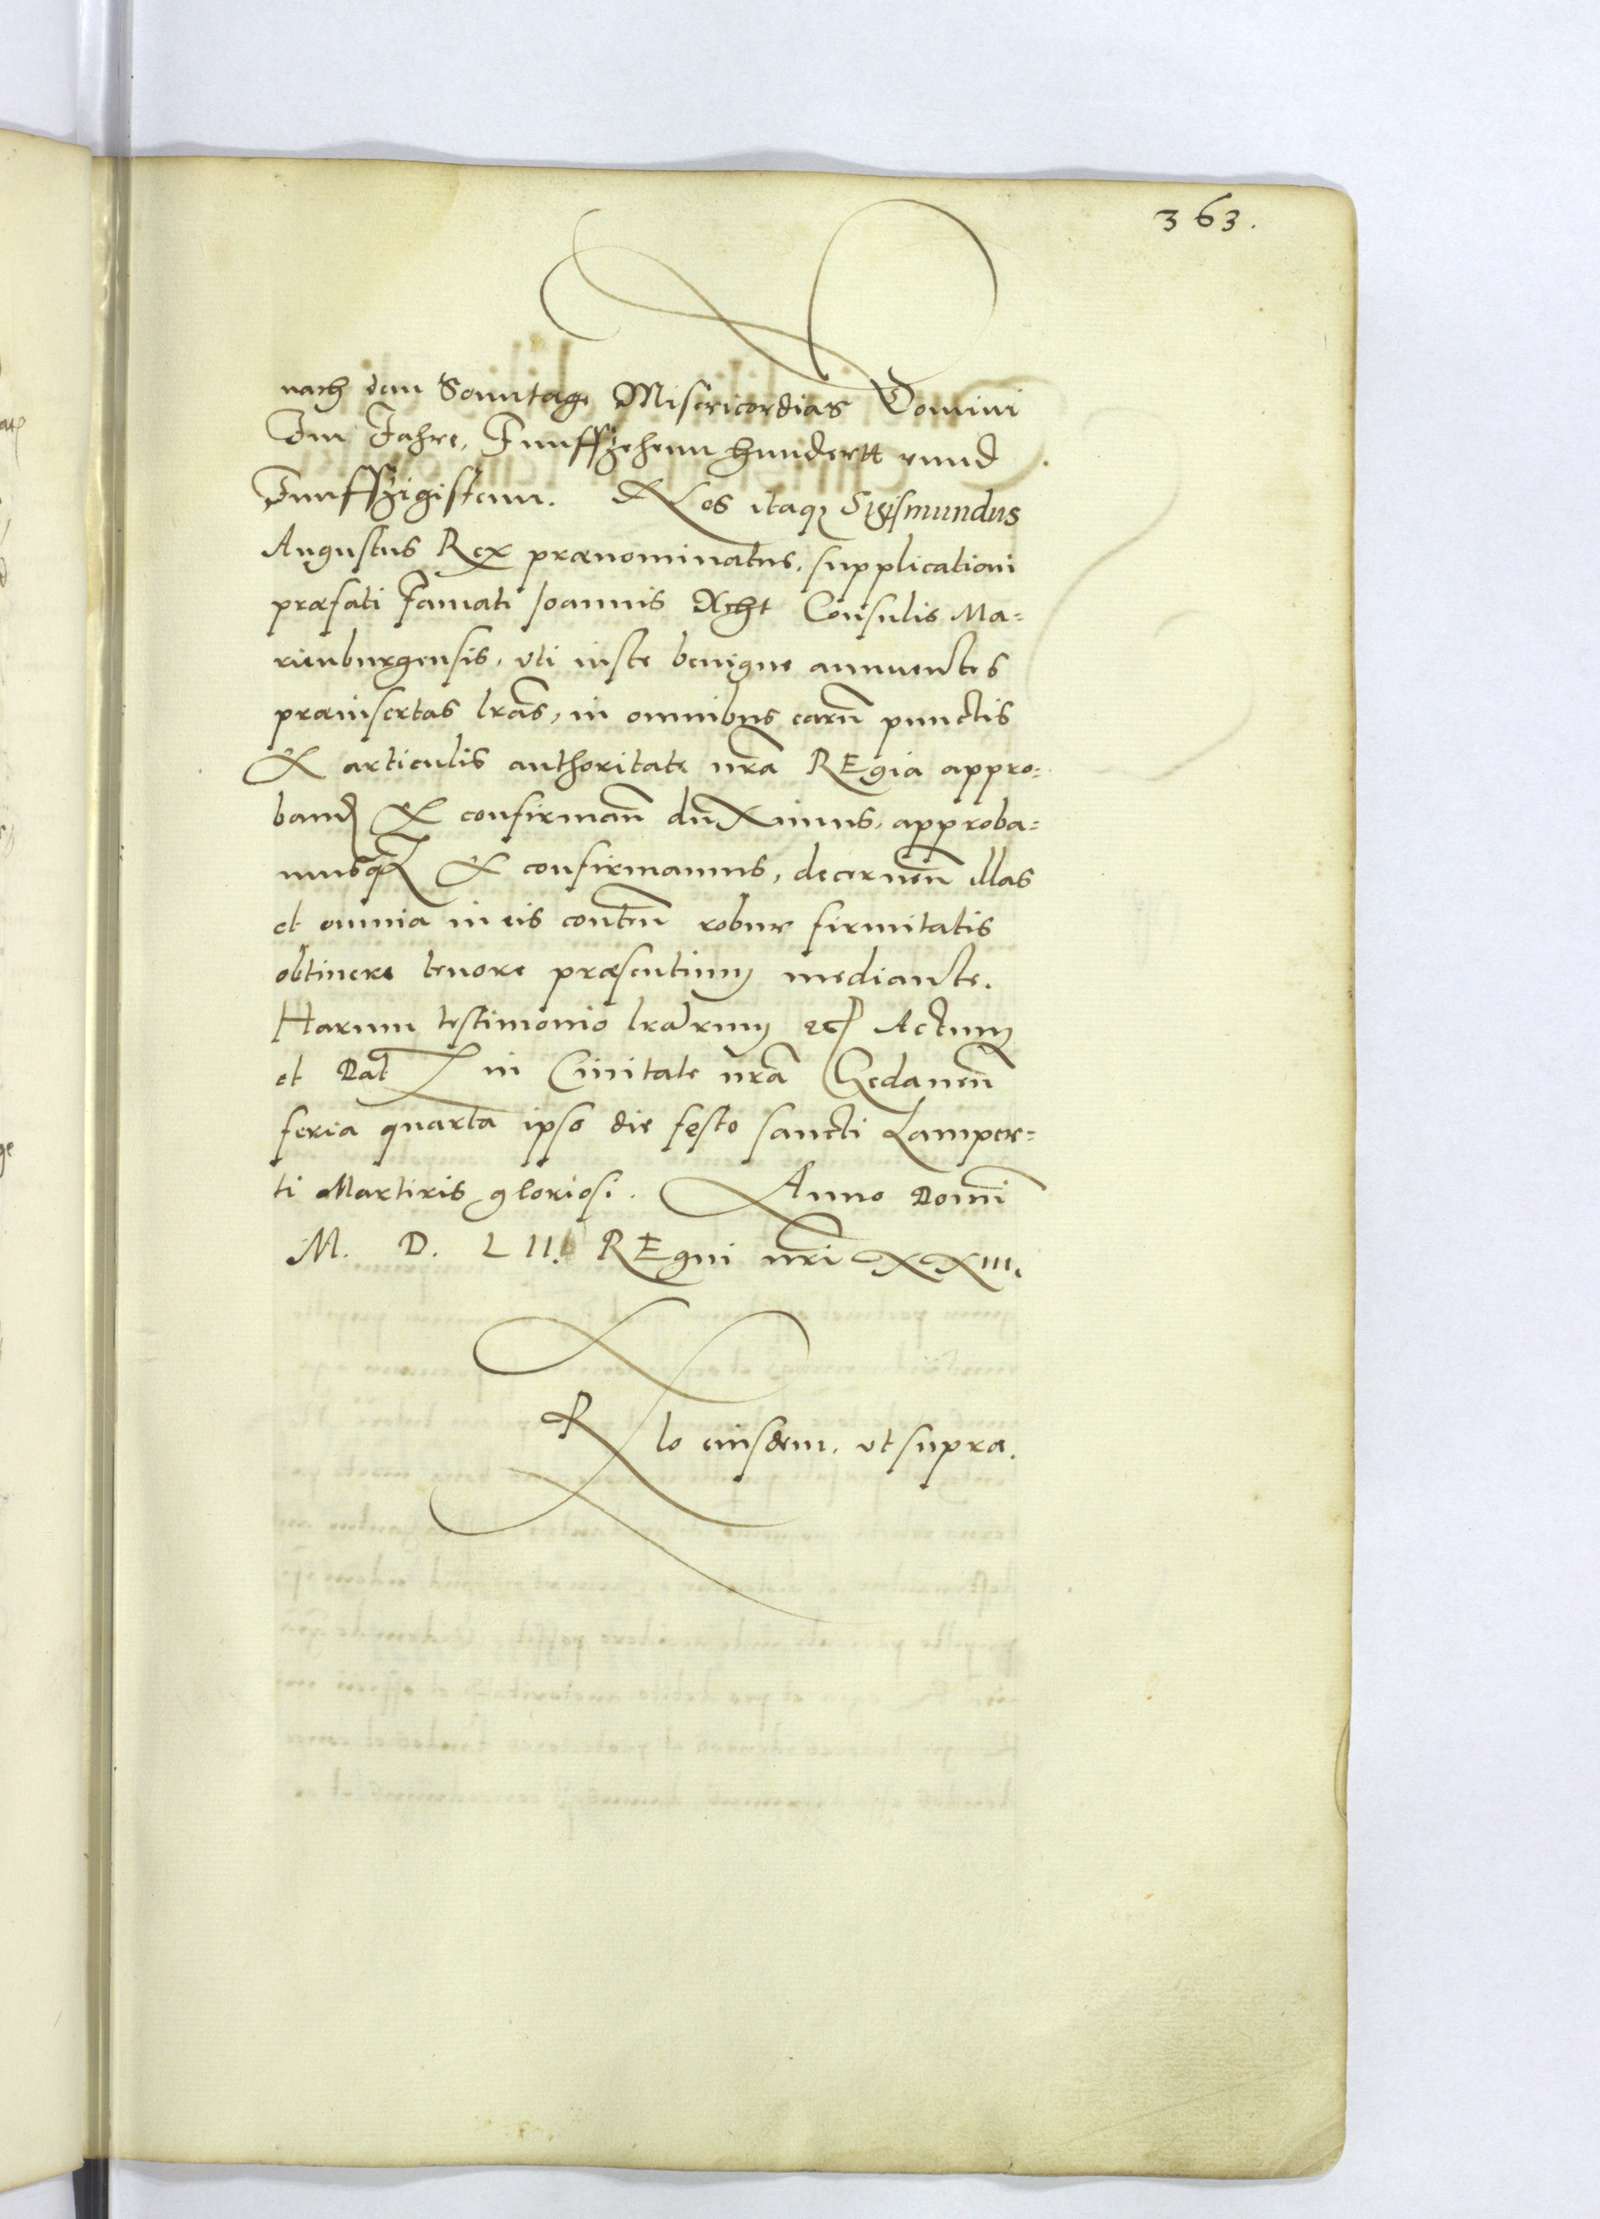 363.
nach dem Sonntage Misericordias Domini
Im Jahre, Funffzehenn hundertt vnnd
Funffzigistenn. Nos itaq; Sigismundus
Augustus Rex prænominatus, supplicationi
præfati Famati Joannis Acht Consulis Ma=
rienburgensis, vti iuste benigne annuentes
præinsertas lras, in omnibus earu punctis
& articulis authoritate nra REgia appro=
band & confirman duximus, approba=
musq; & confirmamus, decernen illas
et omnia in eis conten robur firmitatis
obtinere tenore præsentium mediante.
Harum testimonio lrarum etc Actum
et Dat in Ciuitate nra Gedanen
feria quarta ipso die festo sancti Lamper=
ti Martiris gloriosi. Anno Domi
M. D. LII. REgni nri XXIII.
Rlo eiusdem. vt supra.